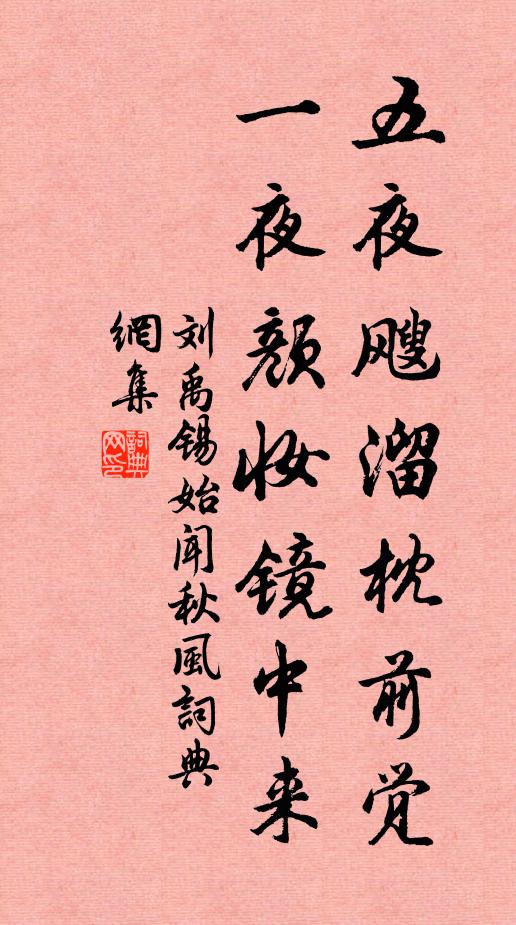 五夜颼溜枕前觉
一夜颜妆镜中来
刘禹锡始闻秋风詞典
網集
詞典网印